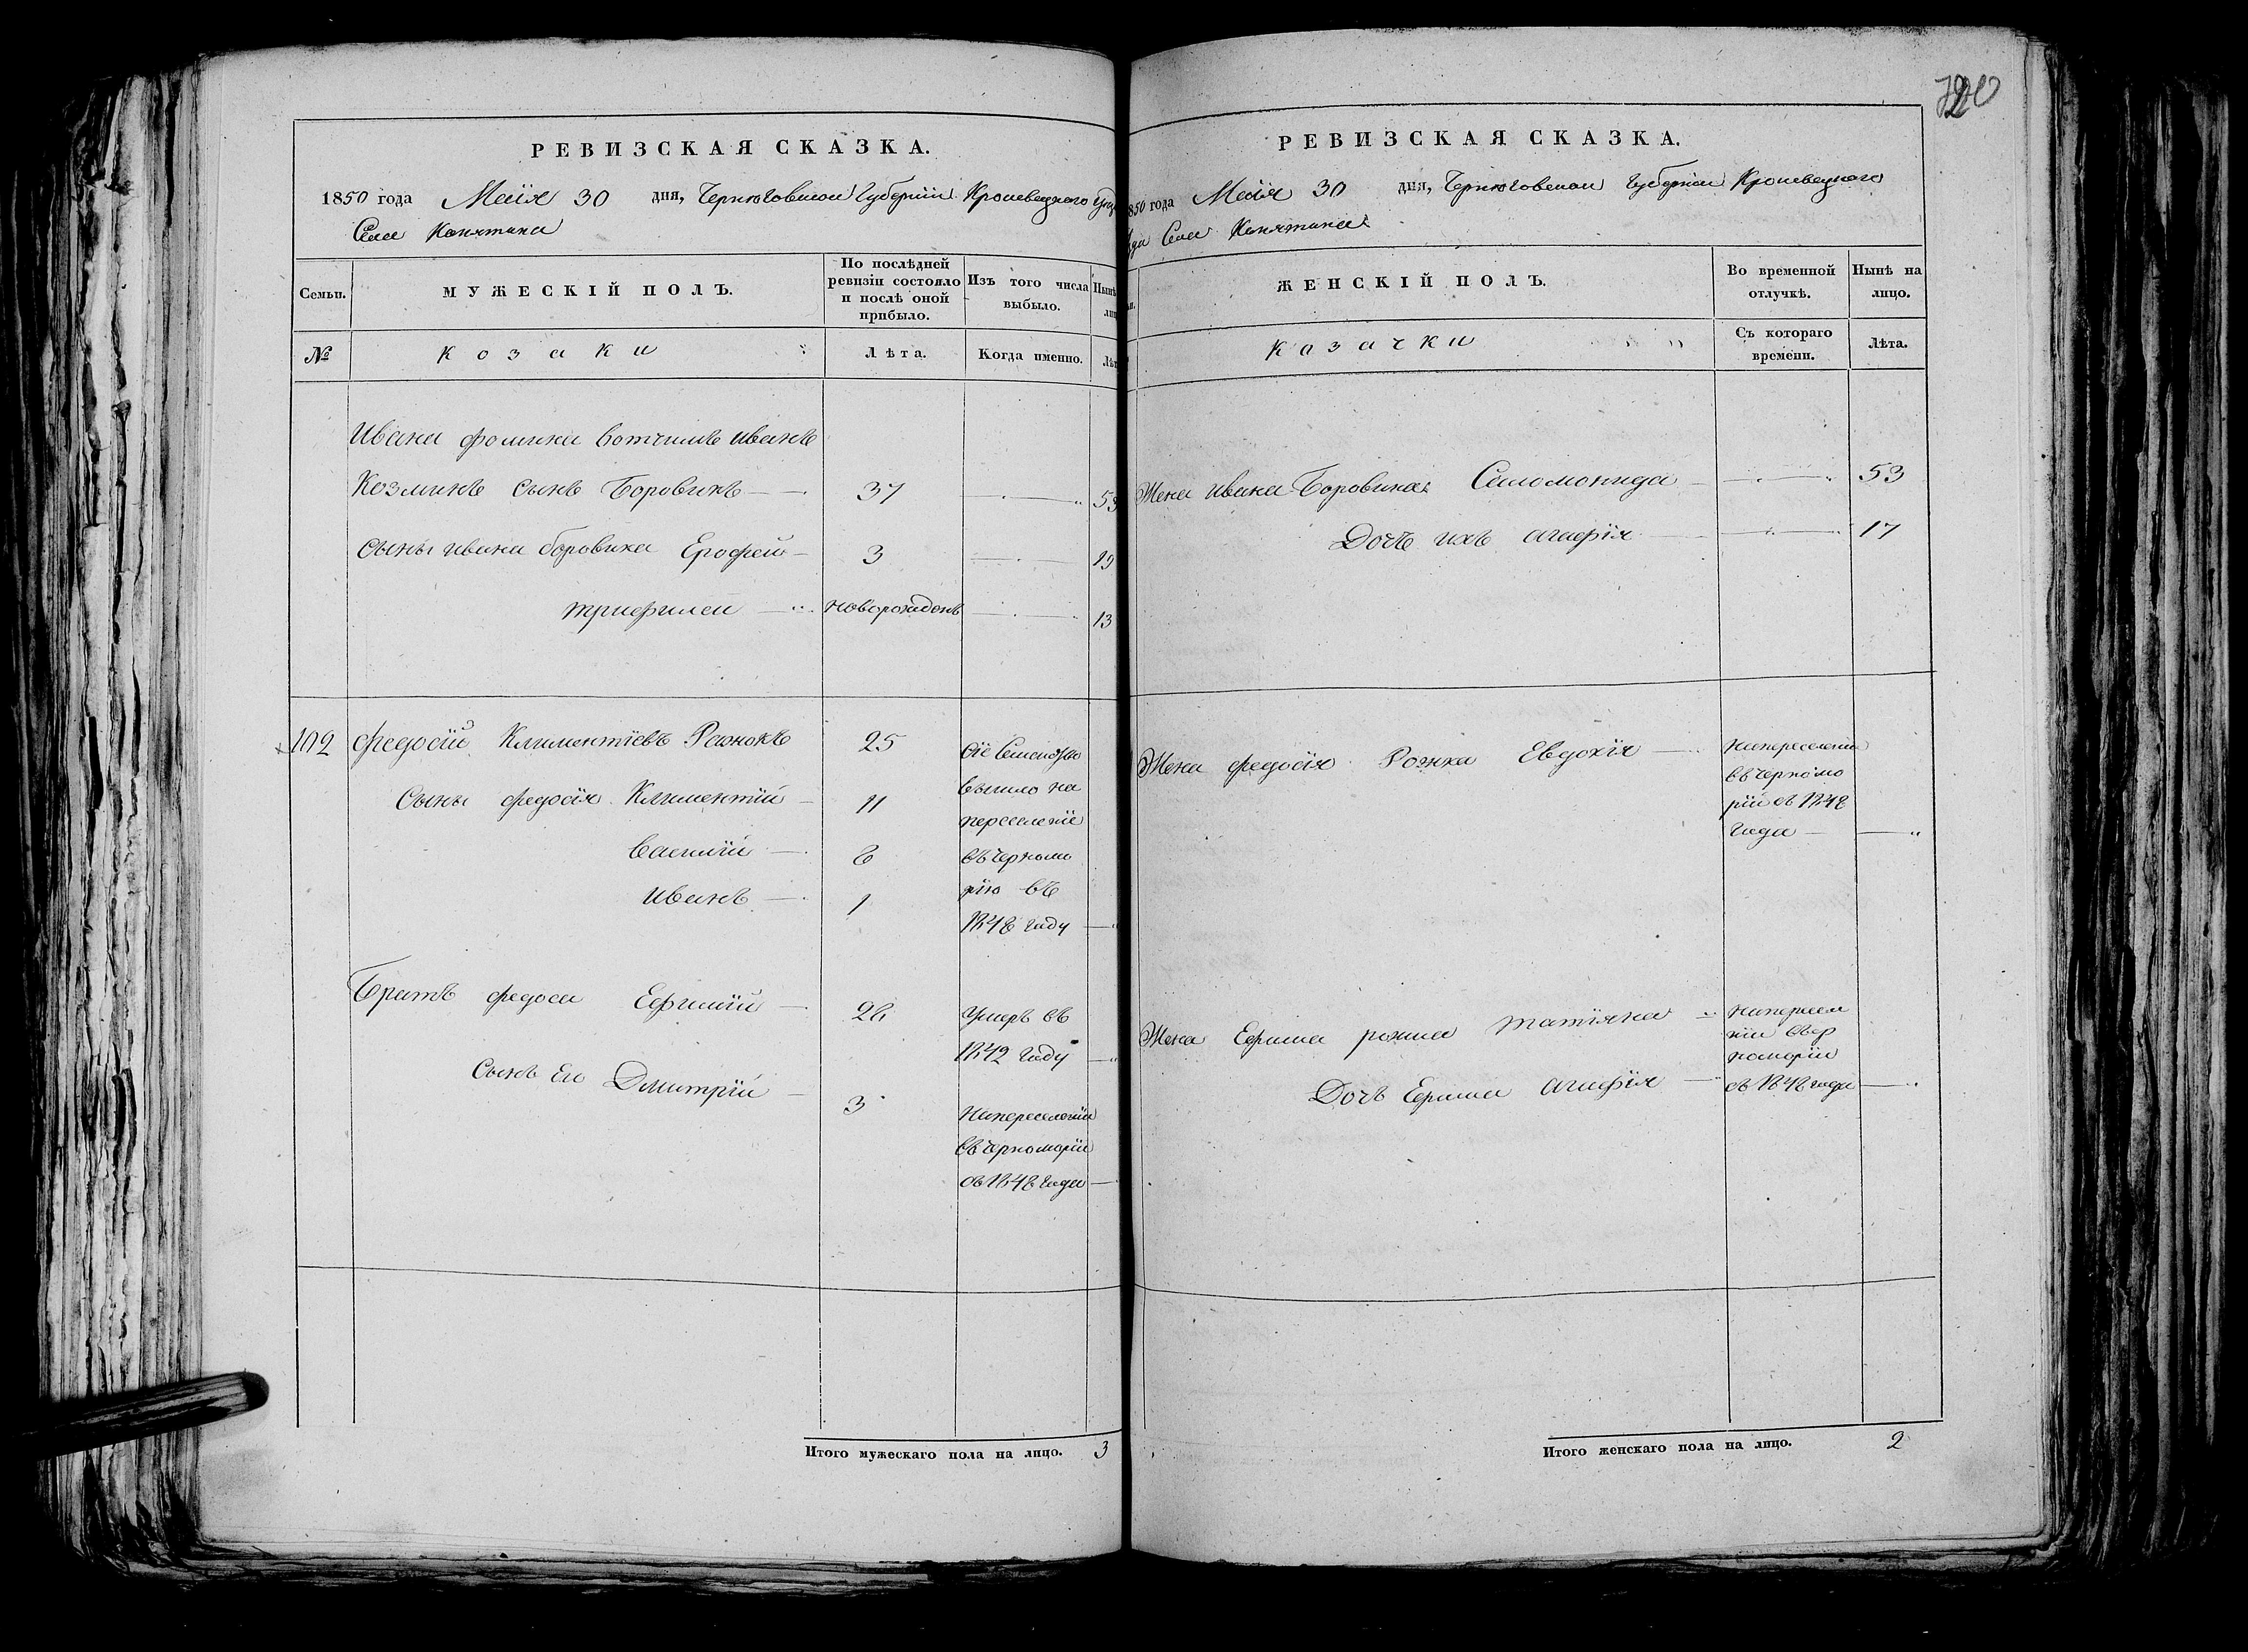 720
РЕВИЗСКАЯ СКАЗКА.
1850 года Маія 30 дня, Черниговской Губерніи Кролевецкаго уѣз
Села Конятина
Семьи. МУЖЕСКІЙ ПОЛЪ. По послѣдней ревизіи состояло и послѣ оной прибыло. Изъ того числа выбыло. Нынѣ
№ Козаки Лѣта. Когда именно.
Ивана фомина вотчимъ иванъ
Козминъ сынъ Боровикъ 37 53
Сыны ивана боровика Ерофей 3 19
трифилеи новорожденъ 13
102 федосій Климентіевъ Рожокъ 25 сіе Семейство
вышло на
переселеніе
въ Черномо
рію въ
1848 году
Сыны федосія Климентій 11
Василій 8
иванъ 1
Братъ федоса Ефимій 26 Умеръ въ
1842 году
Сынъ Ею Дмитрій 3 На переселеніи
въ Черноморіи
съ 1848 года
Итого мужескаго пола на лицо. 3
РЕВИЗСКАЯ СКАЗКА.
850 года Маія 30 дня, Черниговской Губерніи Кролевецкаго
зда Села Конятина
ЖЕНСКІЙ ПОЛЪ. Во временной отлучкѣ. Нынѣ на лицо.
Козачки Съ котораго времени. Лѣта.
Жена ивана Боровика Саломонида 53
Дочь ихъ агафія 17
Жена федосія Рожка Евдокія на переселеніи
въ Черномо
ріи съ 1848
года
Жена Ефима рожка татіяна на пересел
ніи въ Чер
номоріи
Дочь Ефима агафія съ 1848 года
Итого женскаго пола на лицо. 2